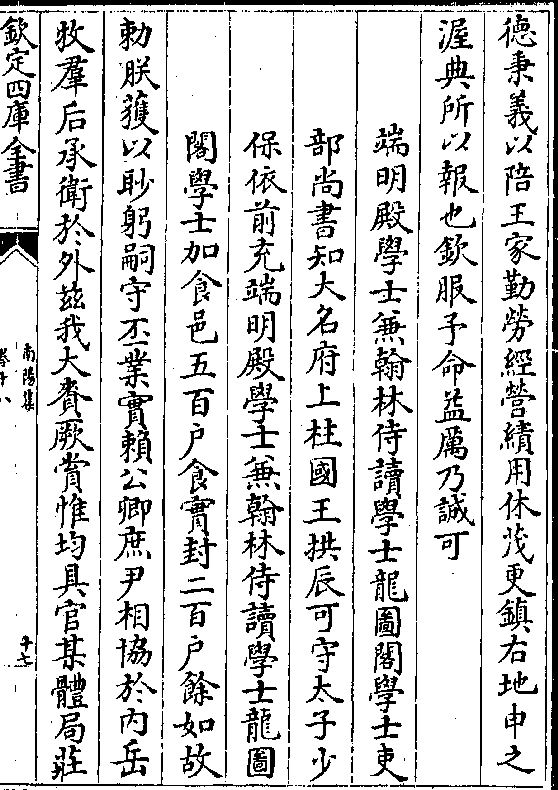 德秉義以陪王家勤勞經營績用休茂更鎮右地申之
渥典所以報也欽服予命益厲乃誠可
端明殿學士兼翰林侍讀學士龍圖閣學士吏
部尚書知大名府上柱國王拱辰可守太子少
保依前充端明殿學士兼翰林侍讀學士龍圖
閣學士加食邑五百户食實封二百户餘如故
勅朕獲以眇躬嗣守丕業實賴公卿庶尹相協於内岳
牧羣后承衛於外兹我大賚厥賞惟均具官某體局莊
欽定四庫全書
南陽集
卷十八
十七